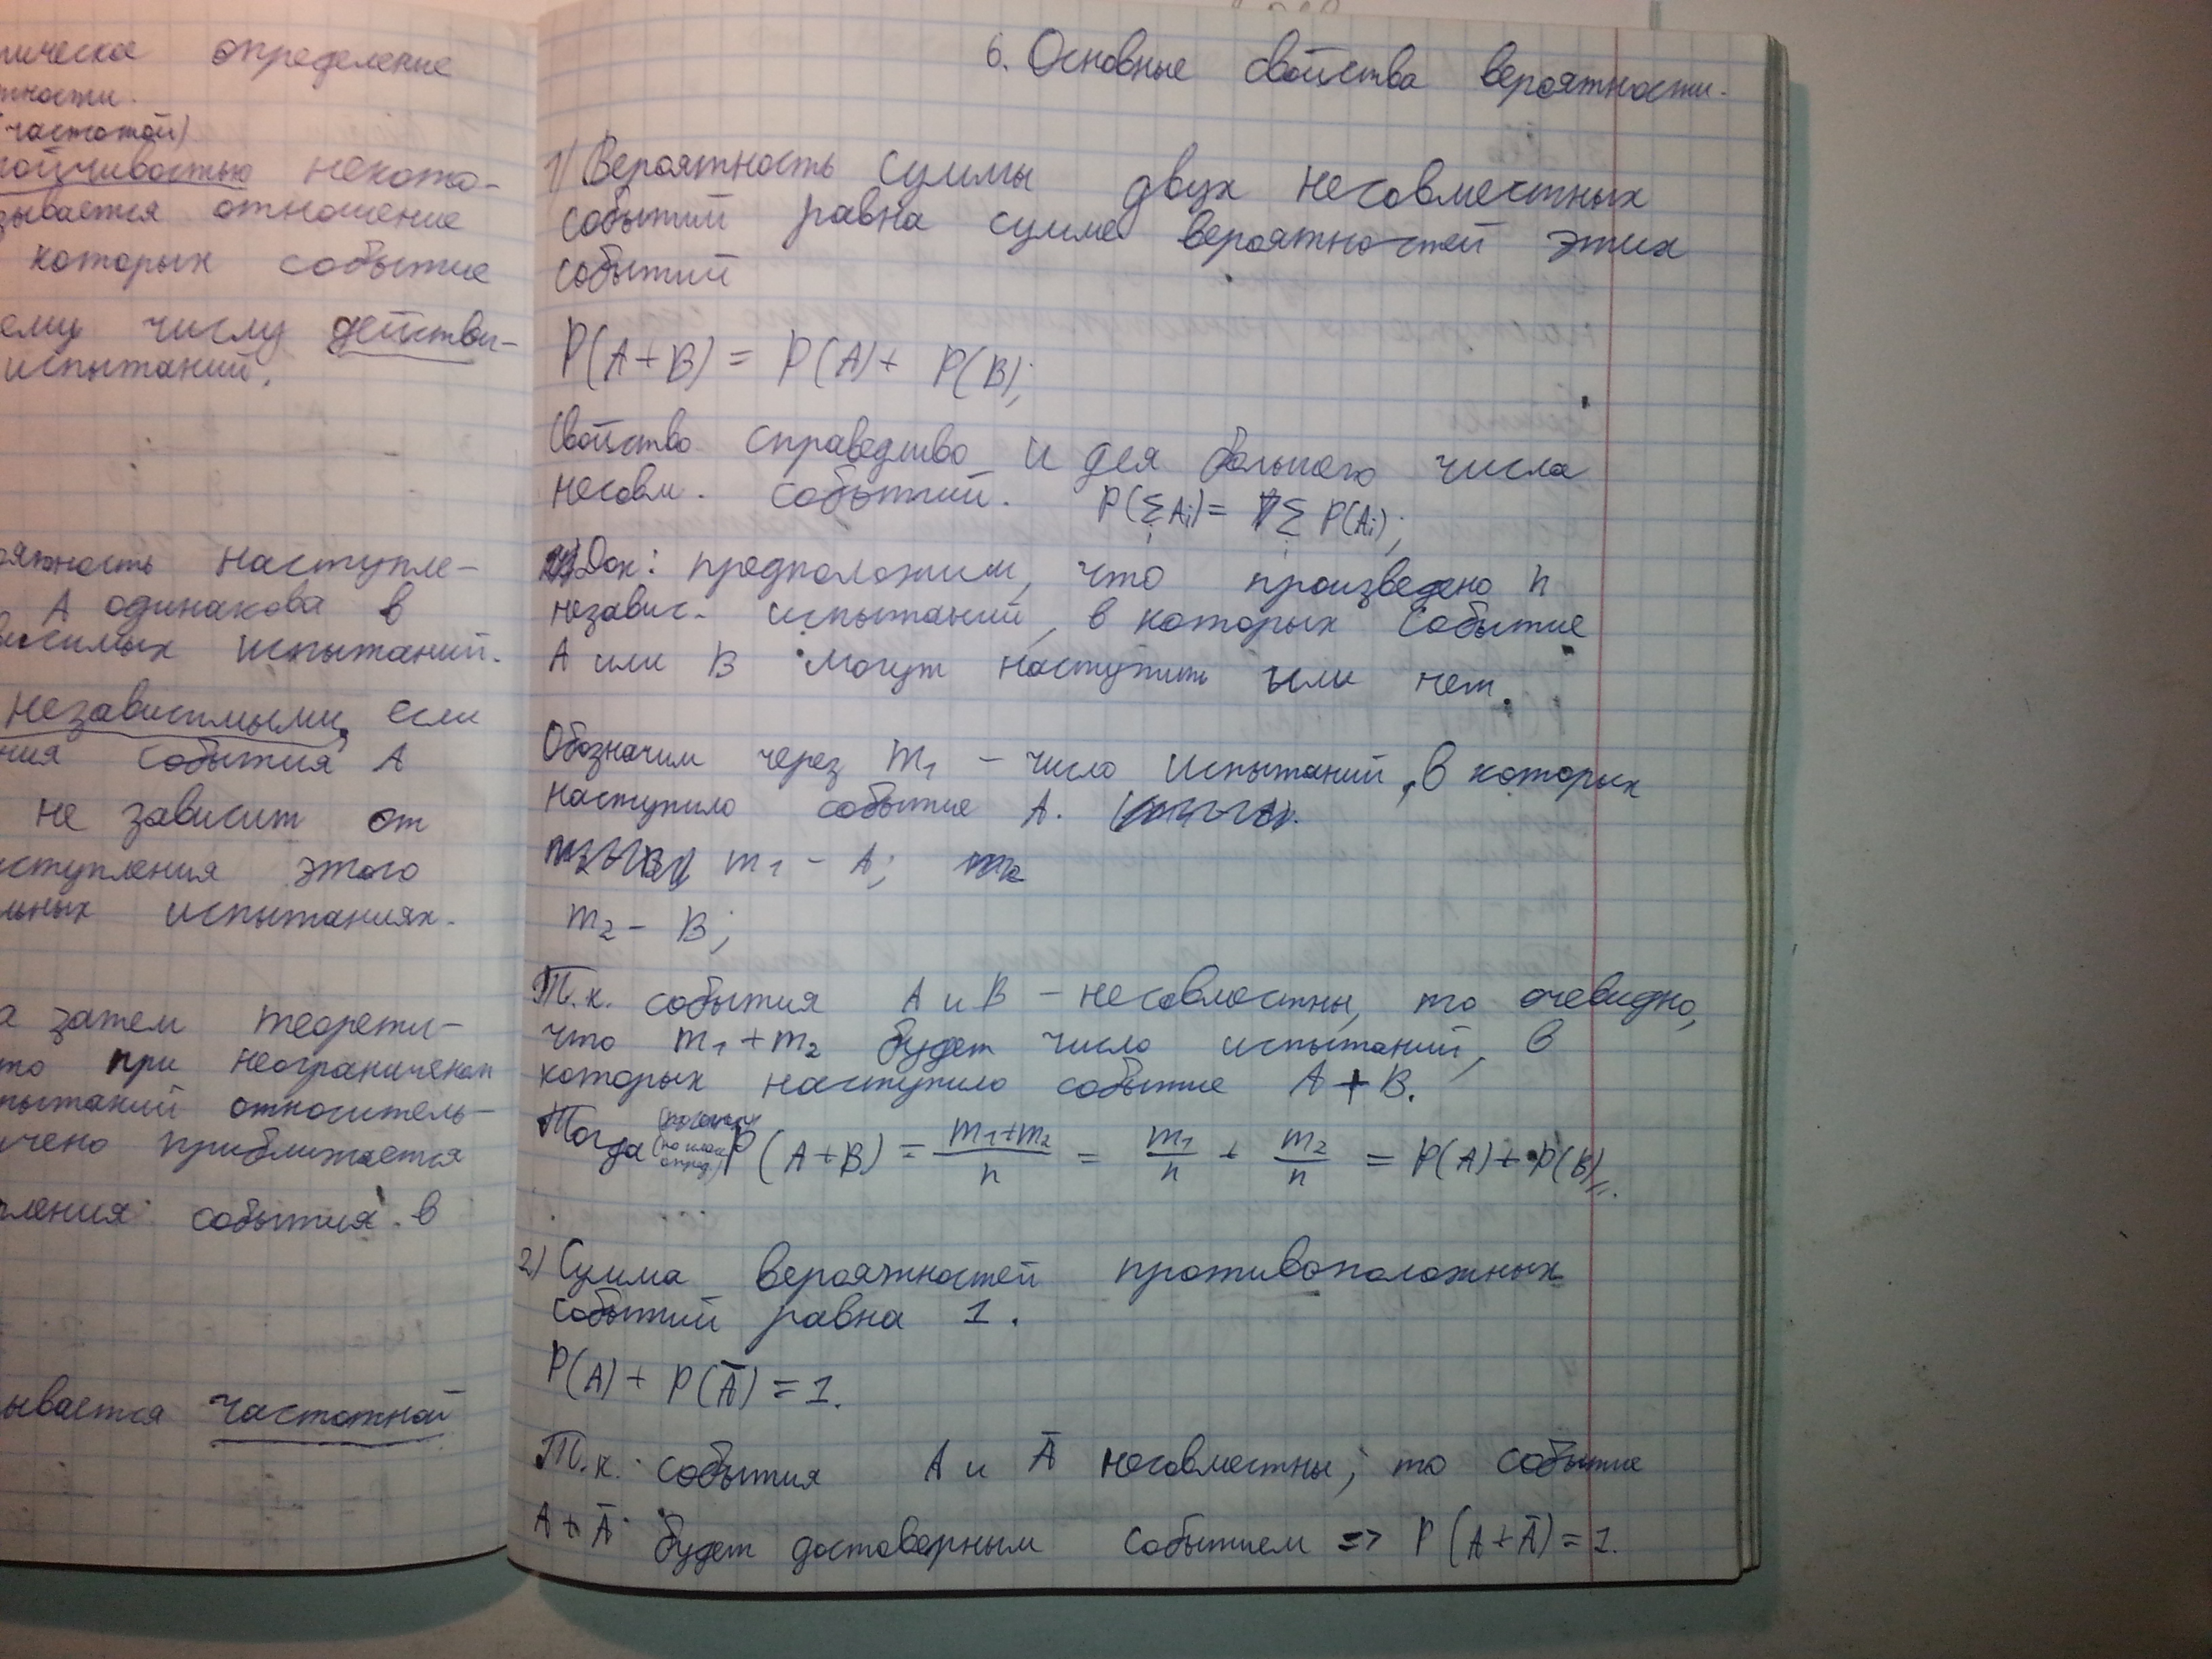 ническое определение
тности.
(частотой)
ойчивостью некото-
зывается отношение
которых событие
ему числу действи-
испытаний.
оятность наступле-
А одинакова в
висимых испытаний.
независимыми, если
ния события А
не зависит от
ступления этого
льных испытаниях.
а затем теорети-
то при неограничен
пытаний относитель-
ичено приближается
пления события в
ывается частотной
6. Основные свойства вероятности.
1) Вероятность суммы двух несовместных
событий равна сумме вероятностей этих
событий
P(A+B) = P(A)+ P(B);
Свойство справедливо и для большего числа
несовм. событий. P(∑Ai)= ∑ P(Ai);
i i
Док: предположим, что произведено n
независ. испытаний, в которых событие
А или В могут наступить или нет.
Обозначим через m₁ – число испытаний, в которых
наступило событие А.
m₁ – A; m₂
m₂ – B;
Т.к. события А и В – несовместны, то очевидно,
что m₁+m₂ будет число испытаний, в
которых наступило событие А + В.
Тогда (по клас. опред.) P(A+B) = (m₁+m₂)/n = m₁/n + m₂/n = P(A)+P(B)//.
2) Сумма вероятностей противоположных
событий равна 1.
P(A)+ P(Ā) = 1.
Т.к. события А и Ā несовместны, то событие
A+Ā будет достоверным событием => P(A+Ā)=1.